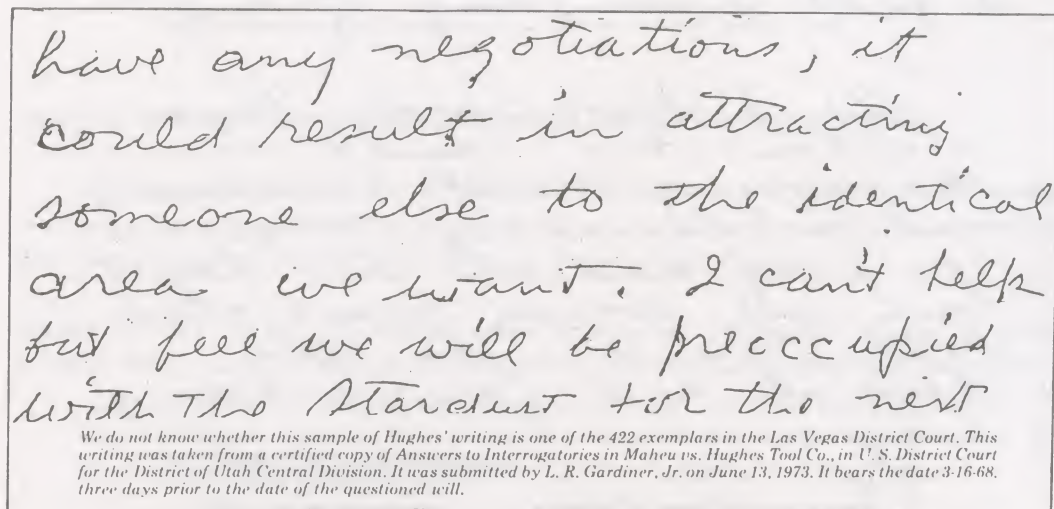 have any negotiations, it
could result in attracting
someone else to the identical
area we want. I can't help
but feel we will be preoccupied
with the Stardust for the next
We do not know whether this sample of Hughes' writing is one of the 422 exemplars in the Las Vegas District Court. This
writing was taken from a certified copy of Answers to Interrogatories in Maheu vs. Hughes Tool Co., in U.S. District Court
for the District of Utah Central Division. It was submitted by L. R. Gardiner, Jr. on June 13, 1973. It bears the date 3-16-68,
three days prior to the date of the questioned will.